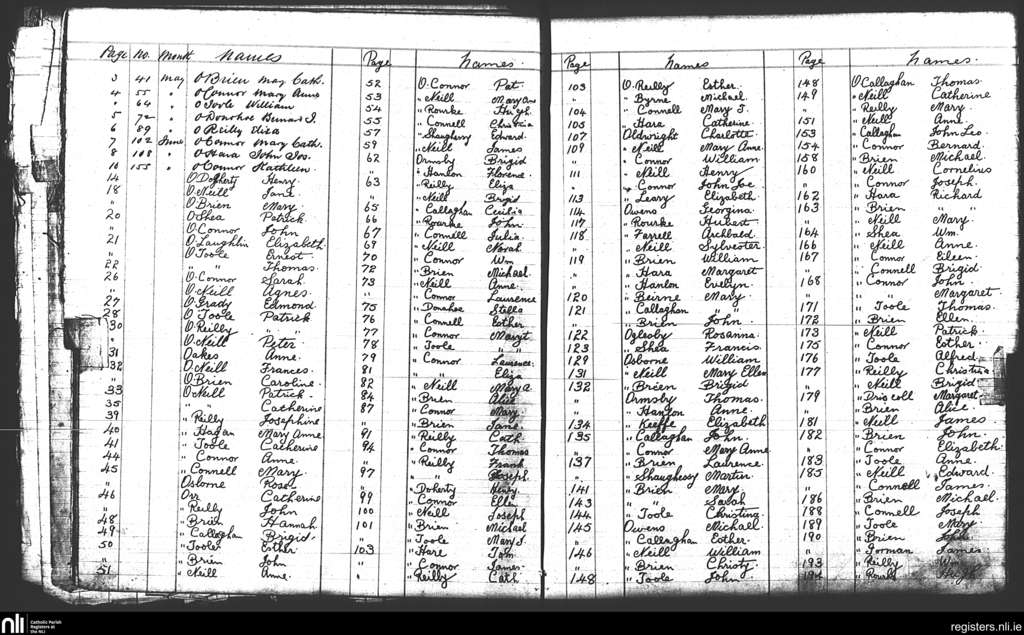 Page No. Month Names
3 41 May O'Brien May Cath.
4 55 " O'Connor Mary Anns
" 64 " O'Toole William
5 72 " O'Donohoe Bernard J.
6 89 " O'Reilly Eliza
7 102 June O'Connor Mary Cath.
8 108 " O'Hara John Jos.
10 155 " O'Connor Kathleen
14 O'Dogherty Henry
18 O'Neill Jane
" O'Brien Mary
20 O'Shea Patrick
" O'Connor John
21 O'Laughlin Elizabeth
" O'Toole Ernest
22 " " Thomas
26 O'Connor Sarah
" O'Neill Agnes
27 O'Grady Edmond
28 O'Toole Patrick
30 O'Reilly " "
" O'Neill Peter
31 Oakes Anne
32 O'Neill Frances
" O'Brien Caroline
33 O'Neill Patrick
35 " " Catherine
39 " Reilly Josephine
40 " Hagan Mary Anne
41 " Toole Catherine
44 " Connor Anne
45 " Connell Mary
" Osborne Rose
46 Orr Catherine
" " Reilly John
48 " Brien Hannah
49 " Callaghan Brigid
50 " Toole Esther
" " Brien John
51 " Neill Anne
Page Names
52 O'Connor Pat.
53 " Neill Mary Ann
54 " Rourke Hugh
55 " Connell Christina
57 " Shaughnessy Edward
59 " Neill James
62 Ormsby Brigid
" " Hanlon Florence
63 " Reilly Eliza
" " Neill Brigid
65 " Callaghan Cecilia
66 " Rourke John
67 " Connell Julia
69 " Neill Norah
70 " Connor Wm
72 " Brien Michael
73 " Neill Anne
" " Connor Laurence
75 " Donohoe Stella
76 " Connell Esther
77 " Connor Margt
78 " Toole " "
79 " Connor Laurence
81 " " Eliza
82 " Neill Mary A
84 " Brien Alice
87 " Connor Mary
" " Brien Jane
91 " Reilly Cath
94 " Connor Thomas
" " Reilly Frank
97 " " Joseph
" " Doherty Henry
99 " Connor Ellen
100 " Neill Joseph
101 " Brien Michael
" " Toole Mary J.
103 " Hare Tom
" " Connor James
" " Reilly Cath
Page Names
103 O'Reilly Esther
" " Byrne Michael
104 " Connell Mary J.
105 " Hara Catherine
107 Oldwright Charlotte
109 " Neill Mary Anne
" " Connor William
111 " Neill Henry
" " Connor John Joe
113 " Leary Elizabeth
114 Owens Georgina
117 " Rourke Hubert
118 " Farrell Archbald
" " Neill Sylvester
119 " Brien William
" " Hara Margaret
" " Hanlon Evelyn
120 " Beirne Mary
121 " Callaghan " "
" " Brien John
122 Oglesby Rosanna
123 " Shea Francis
129 Osborne William
131 " Neill Mary Ellen
132 " Brien Brigid
" Ormsby Thomas
" " Hanlon Anne
134 " Keeffe Elizabeth
135 " Callaghan John
" " Connor Mary Anne
137 " Brien Laurence
" " Shaughessy Martin
141 " Brien Mary
143 " " Sarah
144 " Toole Christina
145 Owens Michael
" " Callaghan Esther
146 " Neill William
" " Brien Christy
148 " Toole John
Page Names
148 O'Callaghan Thomas
149 " Neill Catherine
" " Reilly Mary
151 " Neill Anne
153 " Callaghan John Leo
154 " Connor Bernard
158 " Brien Michael
160 " Neill Cornelius
" " Connor Joseph
162 " Hara Richard
163 " Brien " "
" " Neill Mary
164 " Shea Wm
166 " Neill Anne
167 " Connor Eileen
" " Connell Brigid
168 " Connor John
" " " Margaret
171 " Toole Thomas
172 " Brien Ellen
173 " Neill Patrick
175 " Connor Esther
176 " Toole Alfred
177 " Reilly Christina
" " Neill Brigid
179 " Driscoll Margaret
" " Brien Alice
181 " Neill James
182 " Brien John
" " Connor Elizabeth
183 " Toole Anne
185 " Neill Edward
" " Connell James
186 " Brien Michael
188 " Connell Joseph
189 " Toole Mary
190 " Brien John
" " Gorman James
193 " Reilly Wm
194 " Rourke Hugh
nli Catholic Parish Registers at the NLI
registers.nli.ie